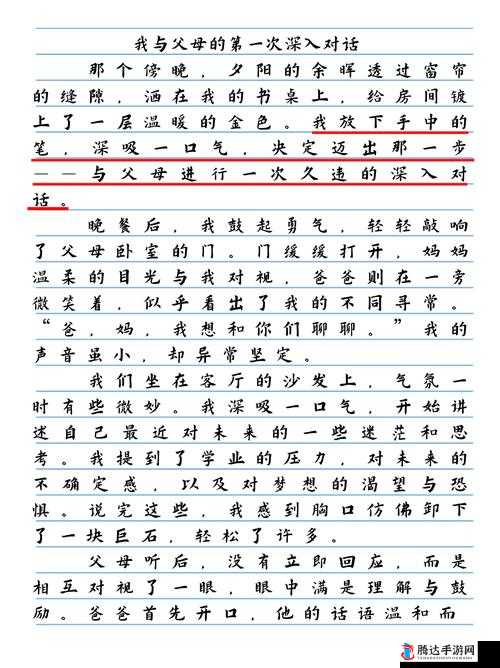 我与父母的第一次深入对话
那个傍晚，夕阳的余晖透过窗帘
的缝隙，洒在我的书桌上，给房间镀
上了一层温暖的金色。我放下手中的
笔，深吸一口气，决定迈出那一步
——与父母进行一次久违的深入对
话。
晚餐后，我鼓起勇气，轻轻敲响
了父母卧室的门。门缓缓打开，妈妈
温柔的目光与我对视，爸爸则在一旁
微笑着，似乎看出了我的不同寻常。
“爸，妈，我想和你们聊聊。”我的
声音虽小，却异常坚定。
我们坐在客厅的沙发上，气氛一
时有些微妙。我深吸一口气，开始讲
述自己最近对未来的一些迷茫和思
考。我提到了学业的压力，对未来的
不确定感，以及对梦想的渴望与恐
惧。说完这些，我感到胸口仿佛卸下
了一块巨石，轻松了许多。
父母听后，没有立即回应，而是
相互对视了一眼，眼中满是理解与鼓
励。爸爸首先开口，他的话语温和而
腾达手游网